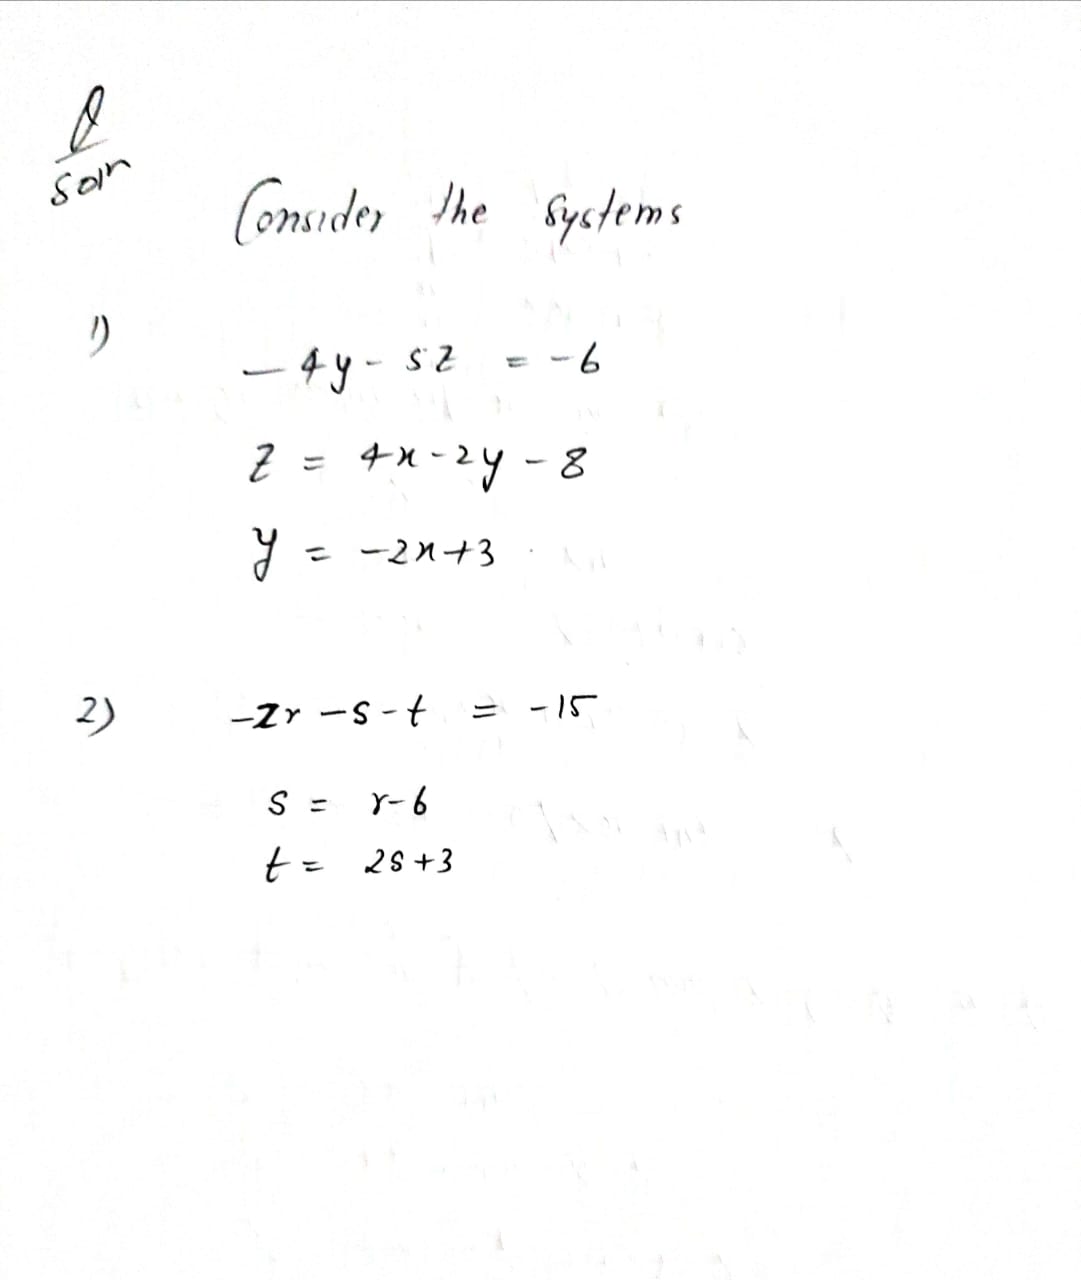 Q
soln
Consider the systems
1)
-4y - 5z = -6
z = 4x - 2y - 8
y = -2x+3
2)
-2r - s - t = -15
s = r-6
t = 2s+3